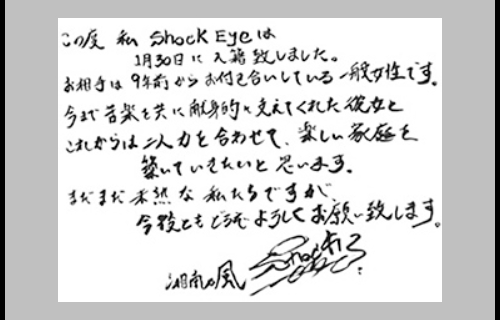 この度 私 SHOCK EYEは
1月30日に入籍致しました。
お相手は9年前からお付き合いしている一般女性です。
今まで音楽を共に献身的に支えてくれた彼女と
これからは二人力を合わせて、楽しい家庭を
築いていきたいと思います。
まだまだ未熟な私たちですが、
今後ともどうぞよろしくお願い致します。
湘南乃風